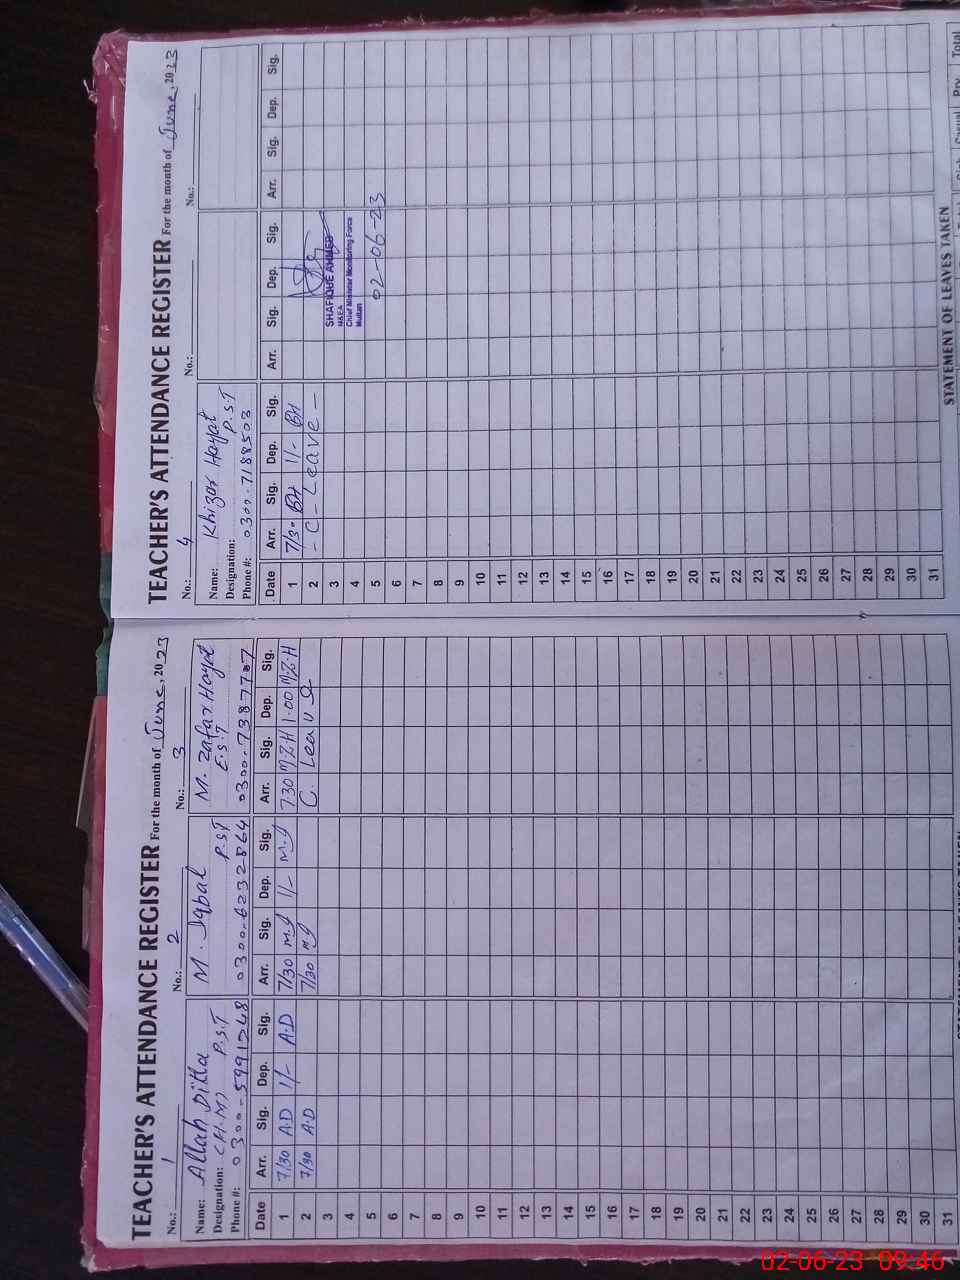 TEACHER'S ATTENDANCE REGISTER For the month of June, 2023
No.: 1
No.: 2
No.: 3
Name: Allah Ditta
Designation: (H.M) P.S.T
Phone #: 0300-5991248
M. Iqbal
P.S.T
0300.6232864
M. Zafar Hayat
E.S.T
0300.7387707
Date Arr. Sig. Dep. Sig. Arr. Sig. Dep. Sig. Arr. Sig. Dep. Sig.
1 7/30 A.D 1/- A.D 7/30 M.I 1/- M.I 7:30 M.Z.H 1.00 M.Z.H
2 7/30 A.D 7/30 M.I C. Leave
3
4
5
6
7
8
9
10
11
12
13
14
15
16
17
18
19
20
21
22
23
24
25
26
27
28
29
30
31
TEACHER'S ATTENDANCE REGISTER For the month of June, 2023
No.: 4
No.:
No.:
Name: Khizar Hayat
Designation: P.S.T
Phone #: 0300.7188503
Date Arr. Sig. Dep. Sig. Arr. Sig. Dep. Sig. Arr. Sig. Dep. Sig.
1 7/30 1/-
2 - C - Leave -
3
4
5
6
7
8
9
10
11
12
13
14
15
16
17
18
19
20
21
22
23
24
25
26
27
28
29
30
31
SHAFIQUE AHMED
MEA
Chief Minister Monitoring Force
Multan
02-06-23
STATEMENT OF LEAVES TAKEN
Casual Prv Total
02-06-23 09:46